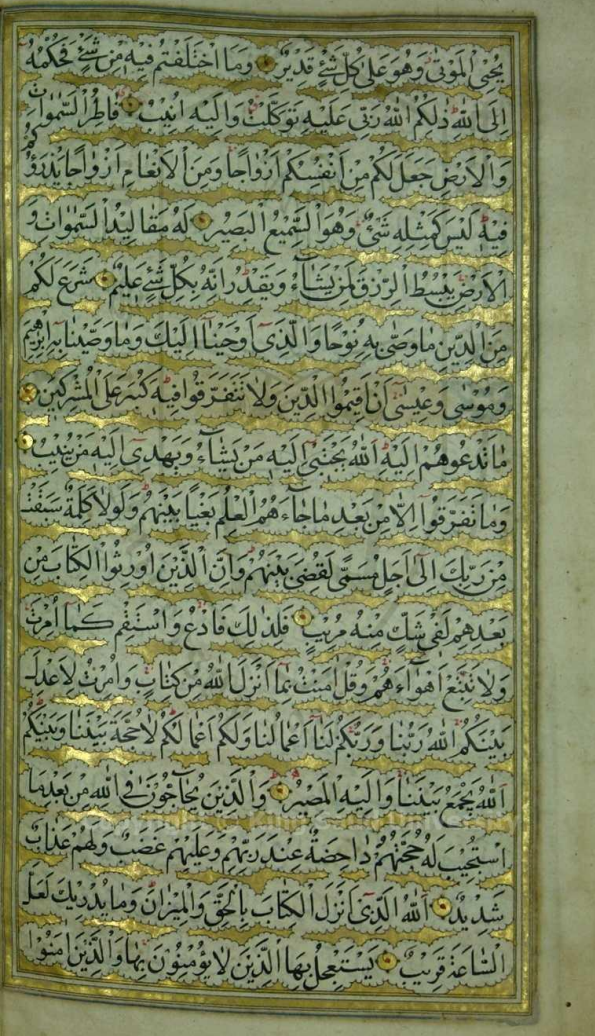 يُحْيِي الْمَوْتٰى وَهُوَ عَلٰى كُلِّ شَيْءٍ قَدِيرٌ وَمَا اخْتَلَفْتُمْ فِيهِ مِنْ شَيْءٍ فَحُكْمُهُ
اِلَى اللّٰهِ ذٰلِكُمُ اللّٰهُ رَبِّي عَلَيْهِ تَوَكَّلْتُ وَاِلَيْهِ اُنِيبُ فَاطِرُ السَّمٰوَاتِ
وَالْاَرْضِ جَعَلَ لَكُمْ مِنْ اَنْفُسِكُمْ اَزْوَاجًا وَمِنَ الْاَنْعَامِ اَزْوَاجًا يَذْرَؤُكُمْ
فِيهِ لَيْسَ كَمِثْلِهِ شَيْءٌ وَهُوَ السَّمِيعُ الْبَصِيرُ لَهُ مَقَالِيدُ السَّمٰوَاتِ وَ
الْاَرْضِ يَبْسُطُ الرِّزْقَ لِمَنْ يَشَاءُ وَيَقْدِرُ اِنَّهُ بِكُلِّ شَيْءٍ عَلِيمٌ شَرَعَ لَكُمْ
مِنَ الدِّينِ مَا وَصّٰى بِهِ نُوحًا وَالَّذِي اَوْحَيْنَا اِلَيْكَ وَمَا وَصَّيْنَا بِهِ اِبْرٰهِيمَ
وَمُوسٰى وَعِيسٰى اَنْ اَقِيمُوا الدِّينَ وَلَا تَتَفَرَّقُوا فِيهِ كَبُرَ عَلَى الْمُشْرِكِينَ
مَا تَدْعُوهُمْ اِلَيْهِ اَللّٰهُ يَجْتَبِي اِلَيْهِ مَنْ يَشَاءُ وَيَهْدِي اِلَيْهِ مَنْ يُنِيبُ
وَمَا تَفَرَّقُوا اِلَّا مِنْ بَعْدِ مَا جَاءَهُمُ الْعِلْمُ بَغْيًا بَيْنَهُمْ وَلَوْلَا كَلِمَةٌ سَبَقَتْ
مِنْ رَبِّكَ اِلٰى اَجَلٍ مُسَمًّى لَقُضِيَ بَيْنَهُمْ وَاِنَّ الَّذِينَ اُورِثُوا الْكِتَابَ مِنْ
بَعْدِهِمْ لَفِي شَكٍّ مِنْهُ مُرِيبٍ فَلِذٰلِكَ فَادْعُ وَاسْتَقِمْ كَمَا اُمِرْتَ
وَلَا تَتَّبِعْ اَهْوَاءَهُمْ وَقُلْ اٰمَنْتُ بِمَا اَنْزَلَ اللّٰهُ مِنْ كِتَابٍ وَاُمِرْتُ لِاَعْدِلَ
بَيْنَكُمُ اللّٰهُ رَبُّنَا وَرَبُّكُمْ لَنَا اَعْمَالُنَا وَلَكُمْ اَعْمَالُكُمْ لَا حُجَّةَ بَيْنَنَا وَبَيْنَكُمُ
اللّٰهُ يَجْمَعُ بَيْنَنَا وَاِلَيْهِ الْمَصِيرُ وَالَّذِينَ يُحَاجُّونَ فِي اللّٰهِ مِنْ بَعْدِ مَا
اسْتُجِيبَ لَهُ حُجَّتُهُمْ دَاحِضَةٌ عِنْدَ رَبِّهِمْ وَعَلَيْهِمْ غَضَبٌ وَلَهُمْ عَذَابٌ
شَدِيدٌ اَللّٰهُ الَّذِي اَنْزَلَ الْكِتَابَ بِالْحَقِّ وَالْمِيزَانَ وَمَا يُدْرِيكَ لَعَلَّ
السَّاعَةَ قَرِيبٌ يَسْتَعْجِلُ بِهَا الَّذِينَ لَا يُؤْمِنُونَ بِهَا وَالَّذِينَ اٰمَنُوا